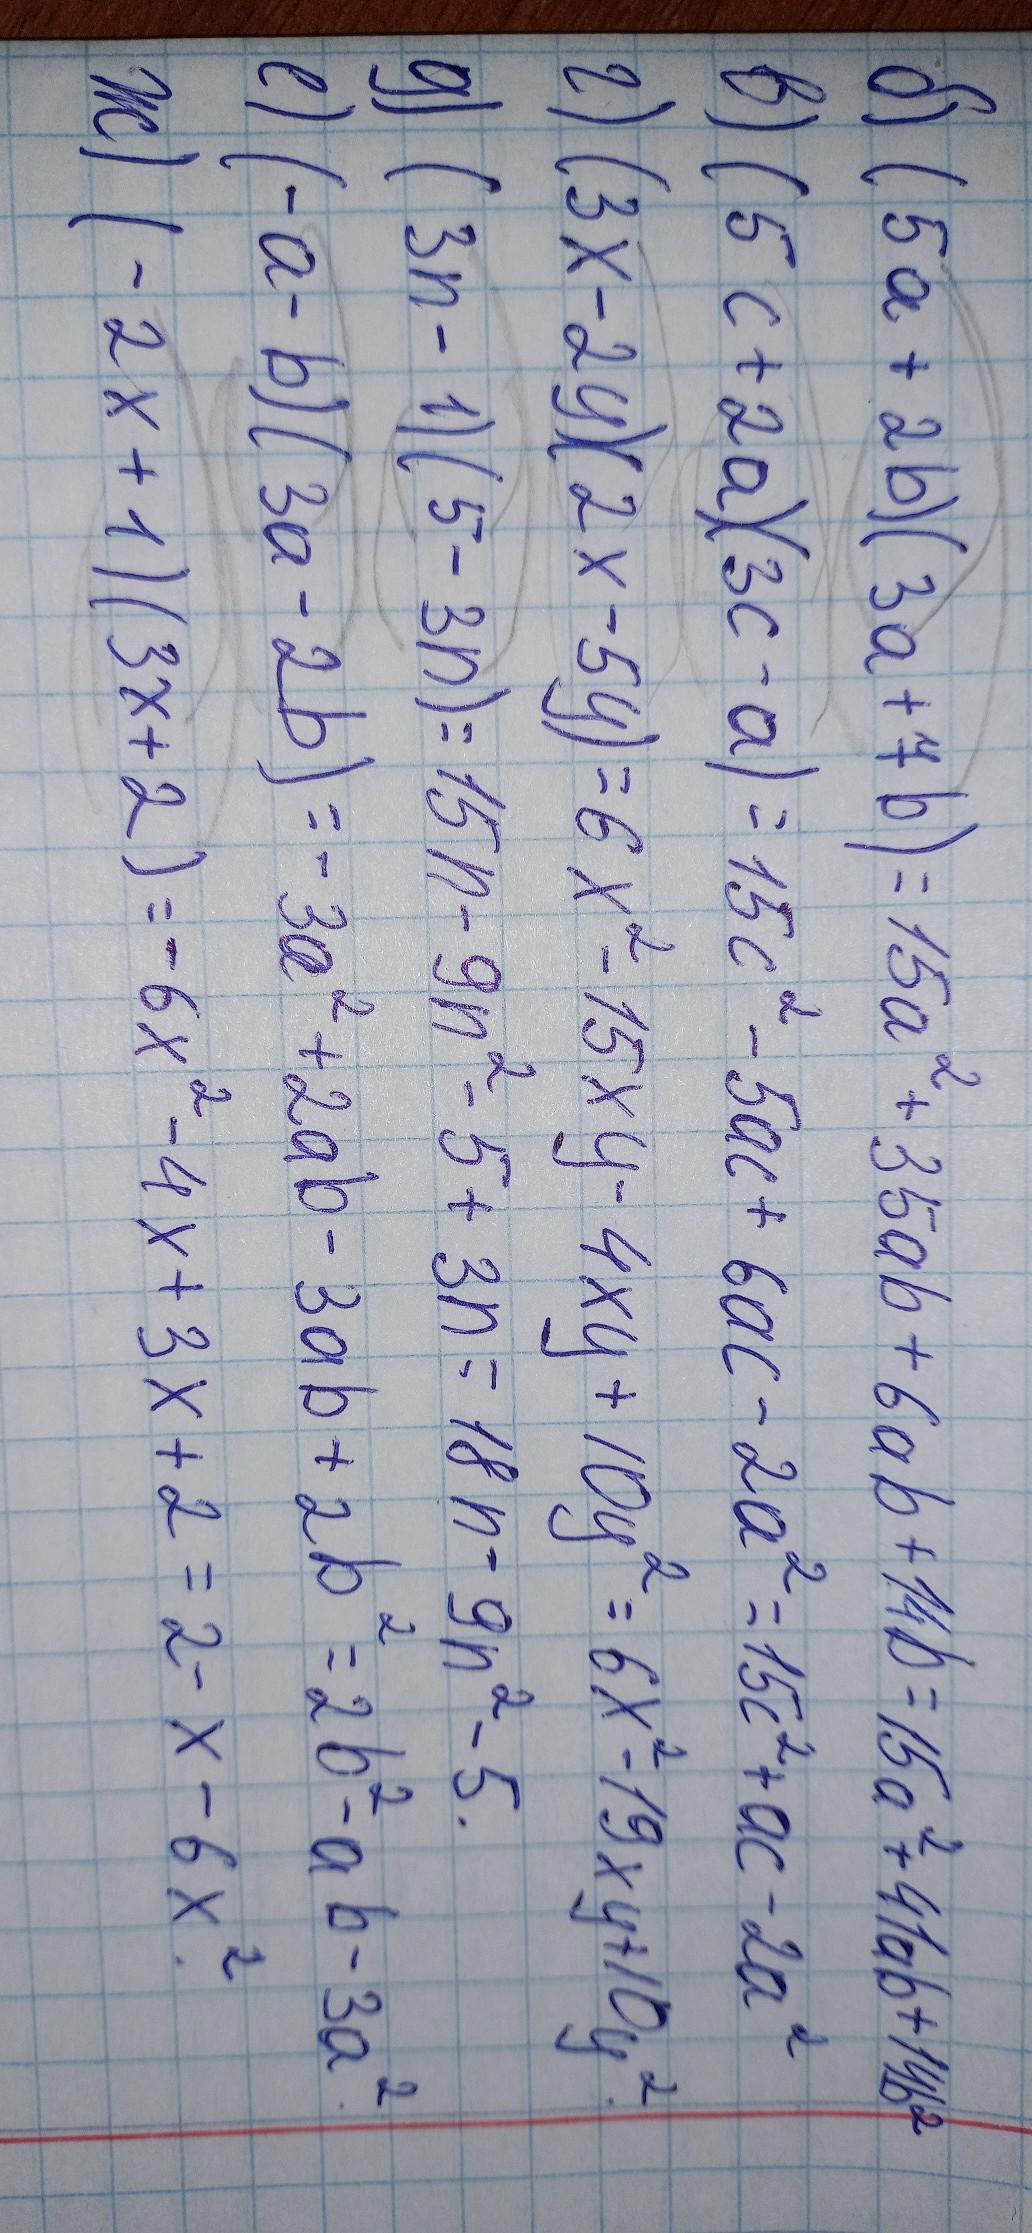 б) (5a + 2b)(3a + 7b) = 15a² + 35ab + 6ab + 14b = 15a² + 41ab + 14b²
в) (5c + 2a)(3c - a) = 15c² - 5ac + 6ac - 2a² = 15c² + ac - 2a²
г) (3x - 2y)(2x - 5y) = 6x² - 15xy - 4xy + 10y² = 6x² - 19xy + 10y².
д) (3n - 1)(5 - 3n) = 15n - 9n² - 5 + 3n = 18n - 9n² - 5.
е) (-a - b)(3a - 2b) = -3a² + 2ab - 3ab + 2b² = 2b² - ab - 3a².
ж) (-2x + 1)(3x + 2) = -6x² - 4x + 3x + 2 = 2 - x - 6x².